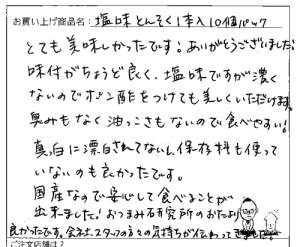 お買い上げ商品名: 塩味とんそく1本入10個パック
とても美味しかったです!ありがとうございました!
味付がちょうど良く、塩味ですが濃く
ないのでポン酢をつけても美しくいただけます。
臭みもなく油っこさもないので食べやすい!
真っ白に漂白されてないし、保存料も使って
いないのも良かったです。
国産なので安心して食べることが
出来ました!おつまみ研究所のおたより
良かったです。会社、スタッフの方々の気持ちが伝わってきました!
ご注文店舗は?